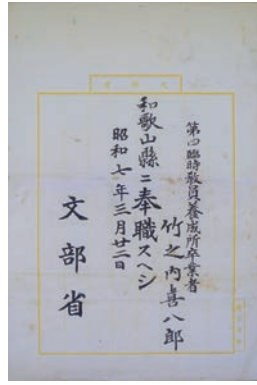 第四臨時教員養成所卒業者
竹之内喜八郎
和歌山縣ニ奉職スヘシ
昭和七年三月廿二日
文部省